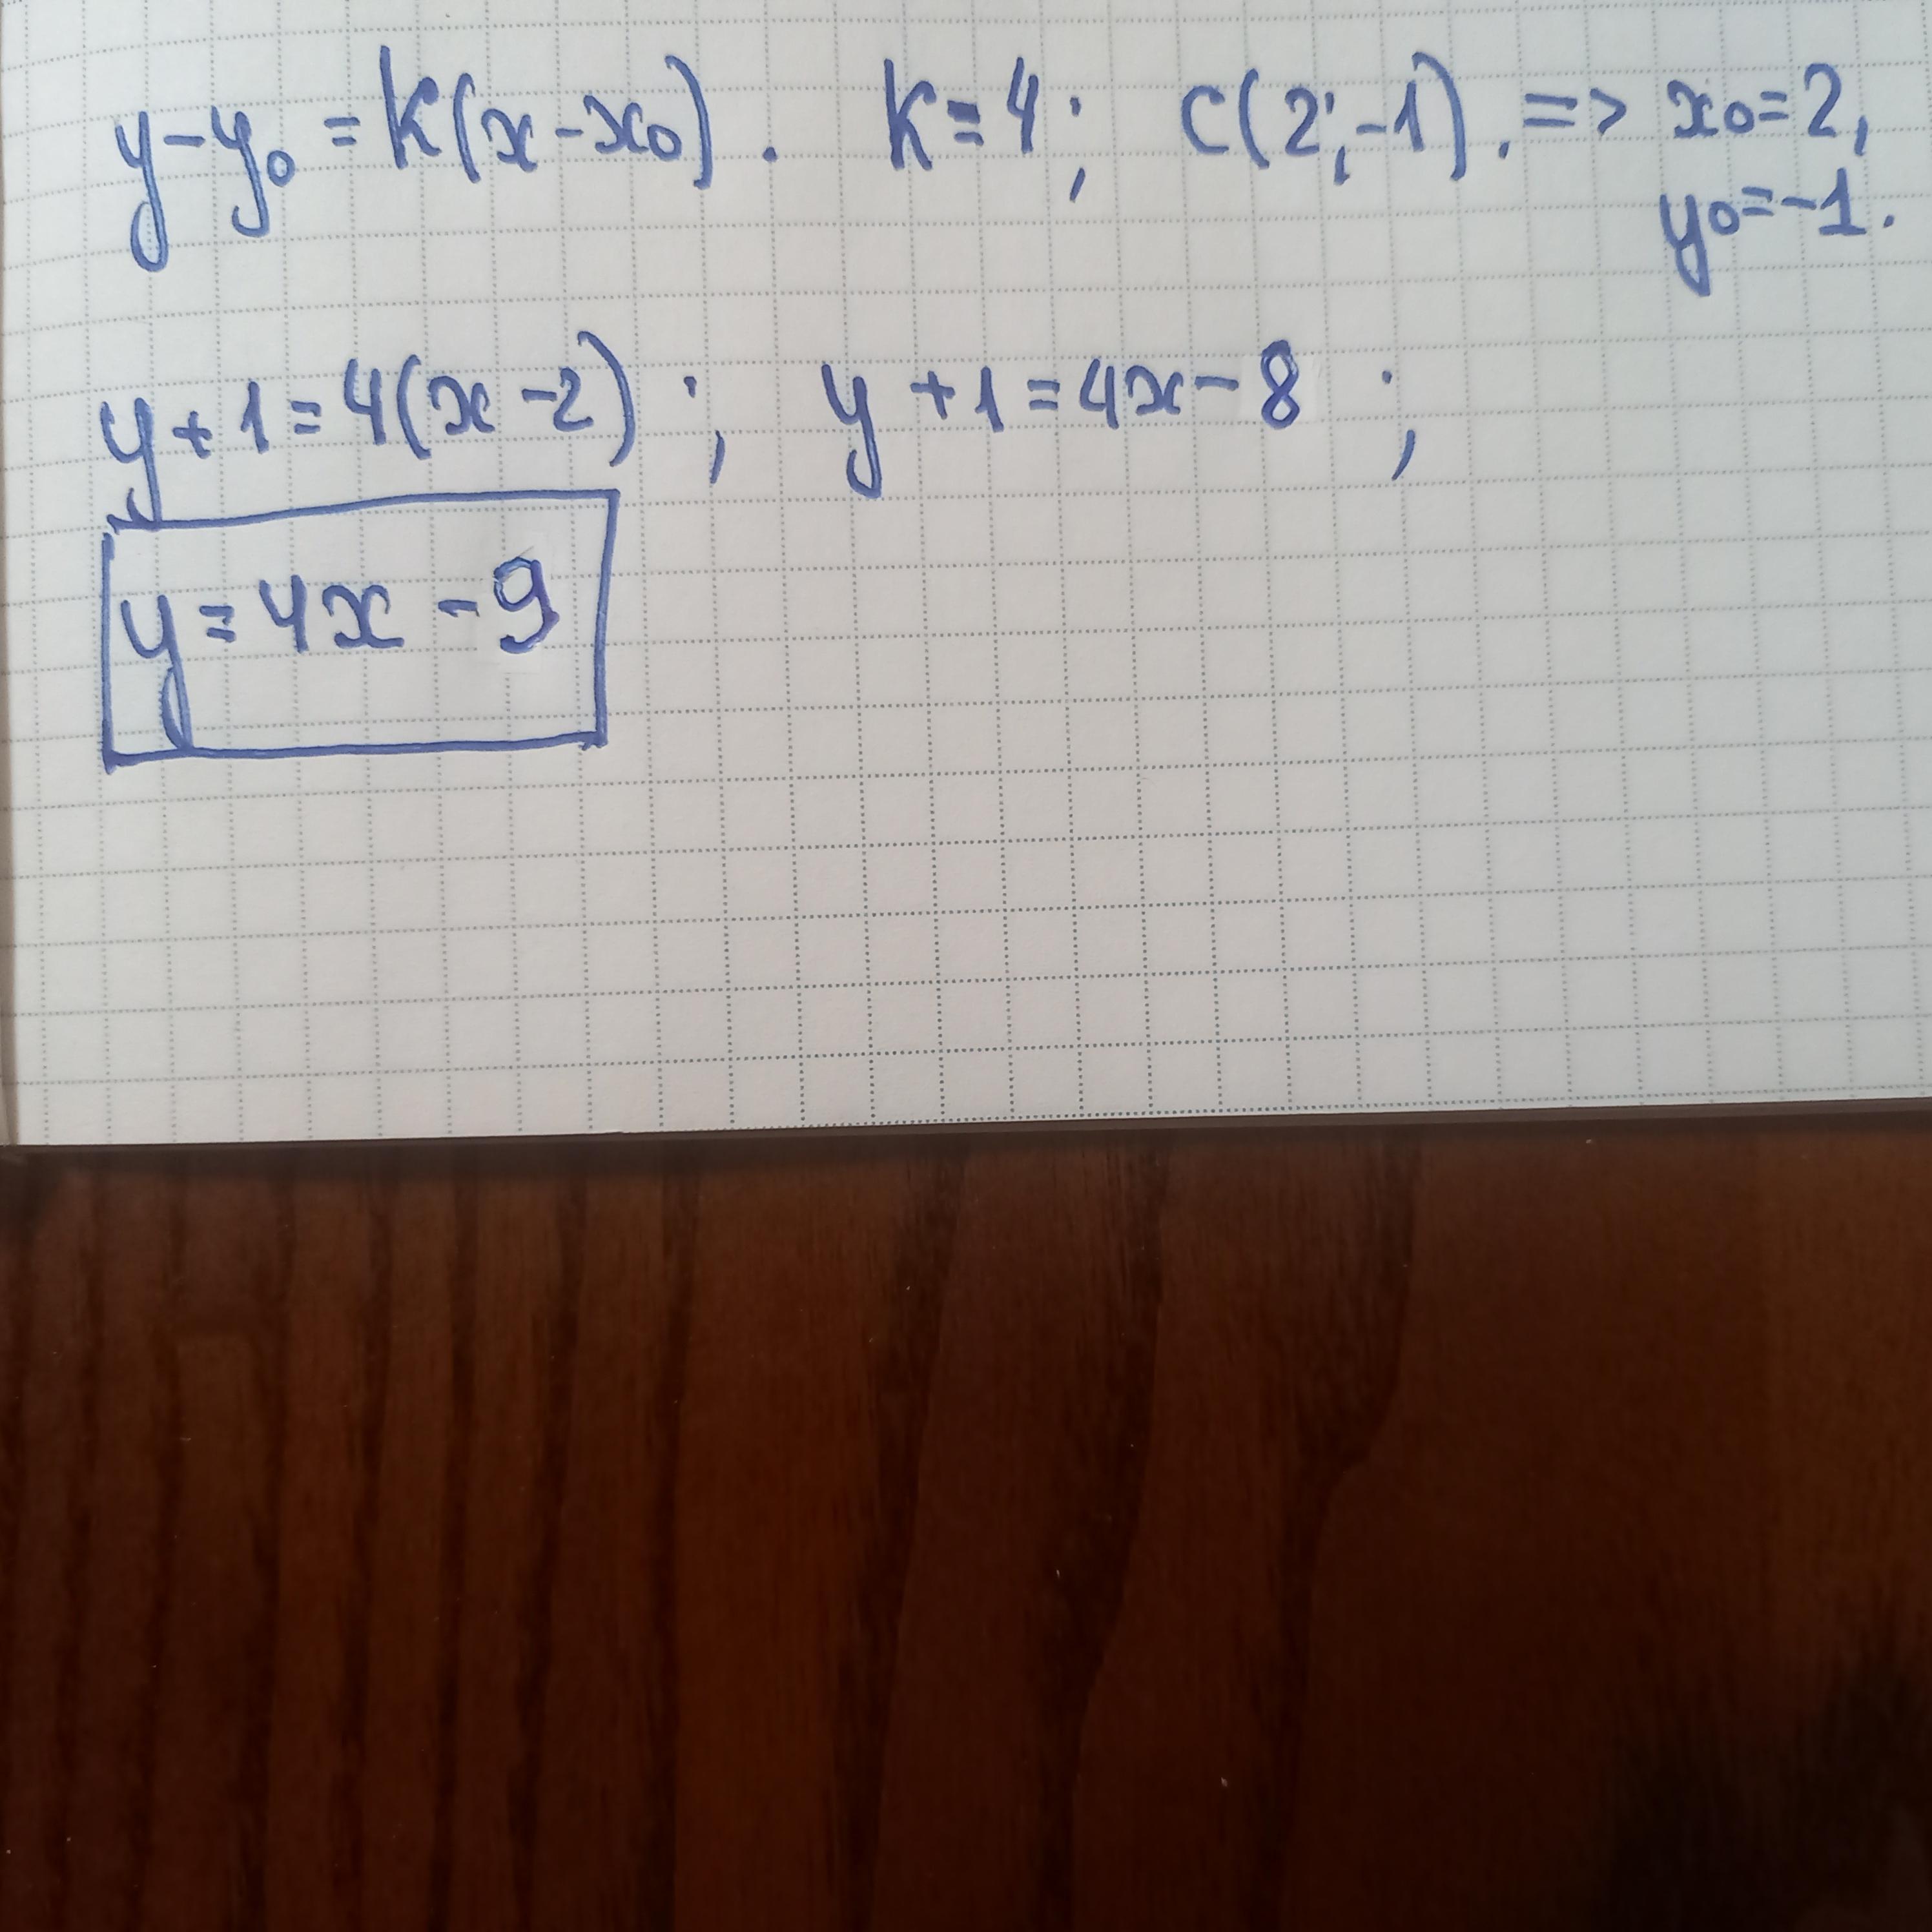 y-y₀=k(x-x₀). k=4; C(2;-1). => x₀=2,
y₀=-1.
y+1=4(x-2); y+1=4x-8;
y=4x-9